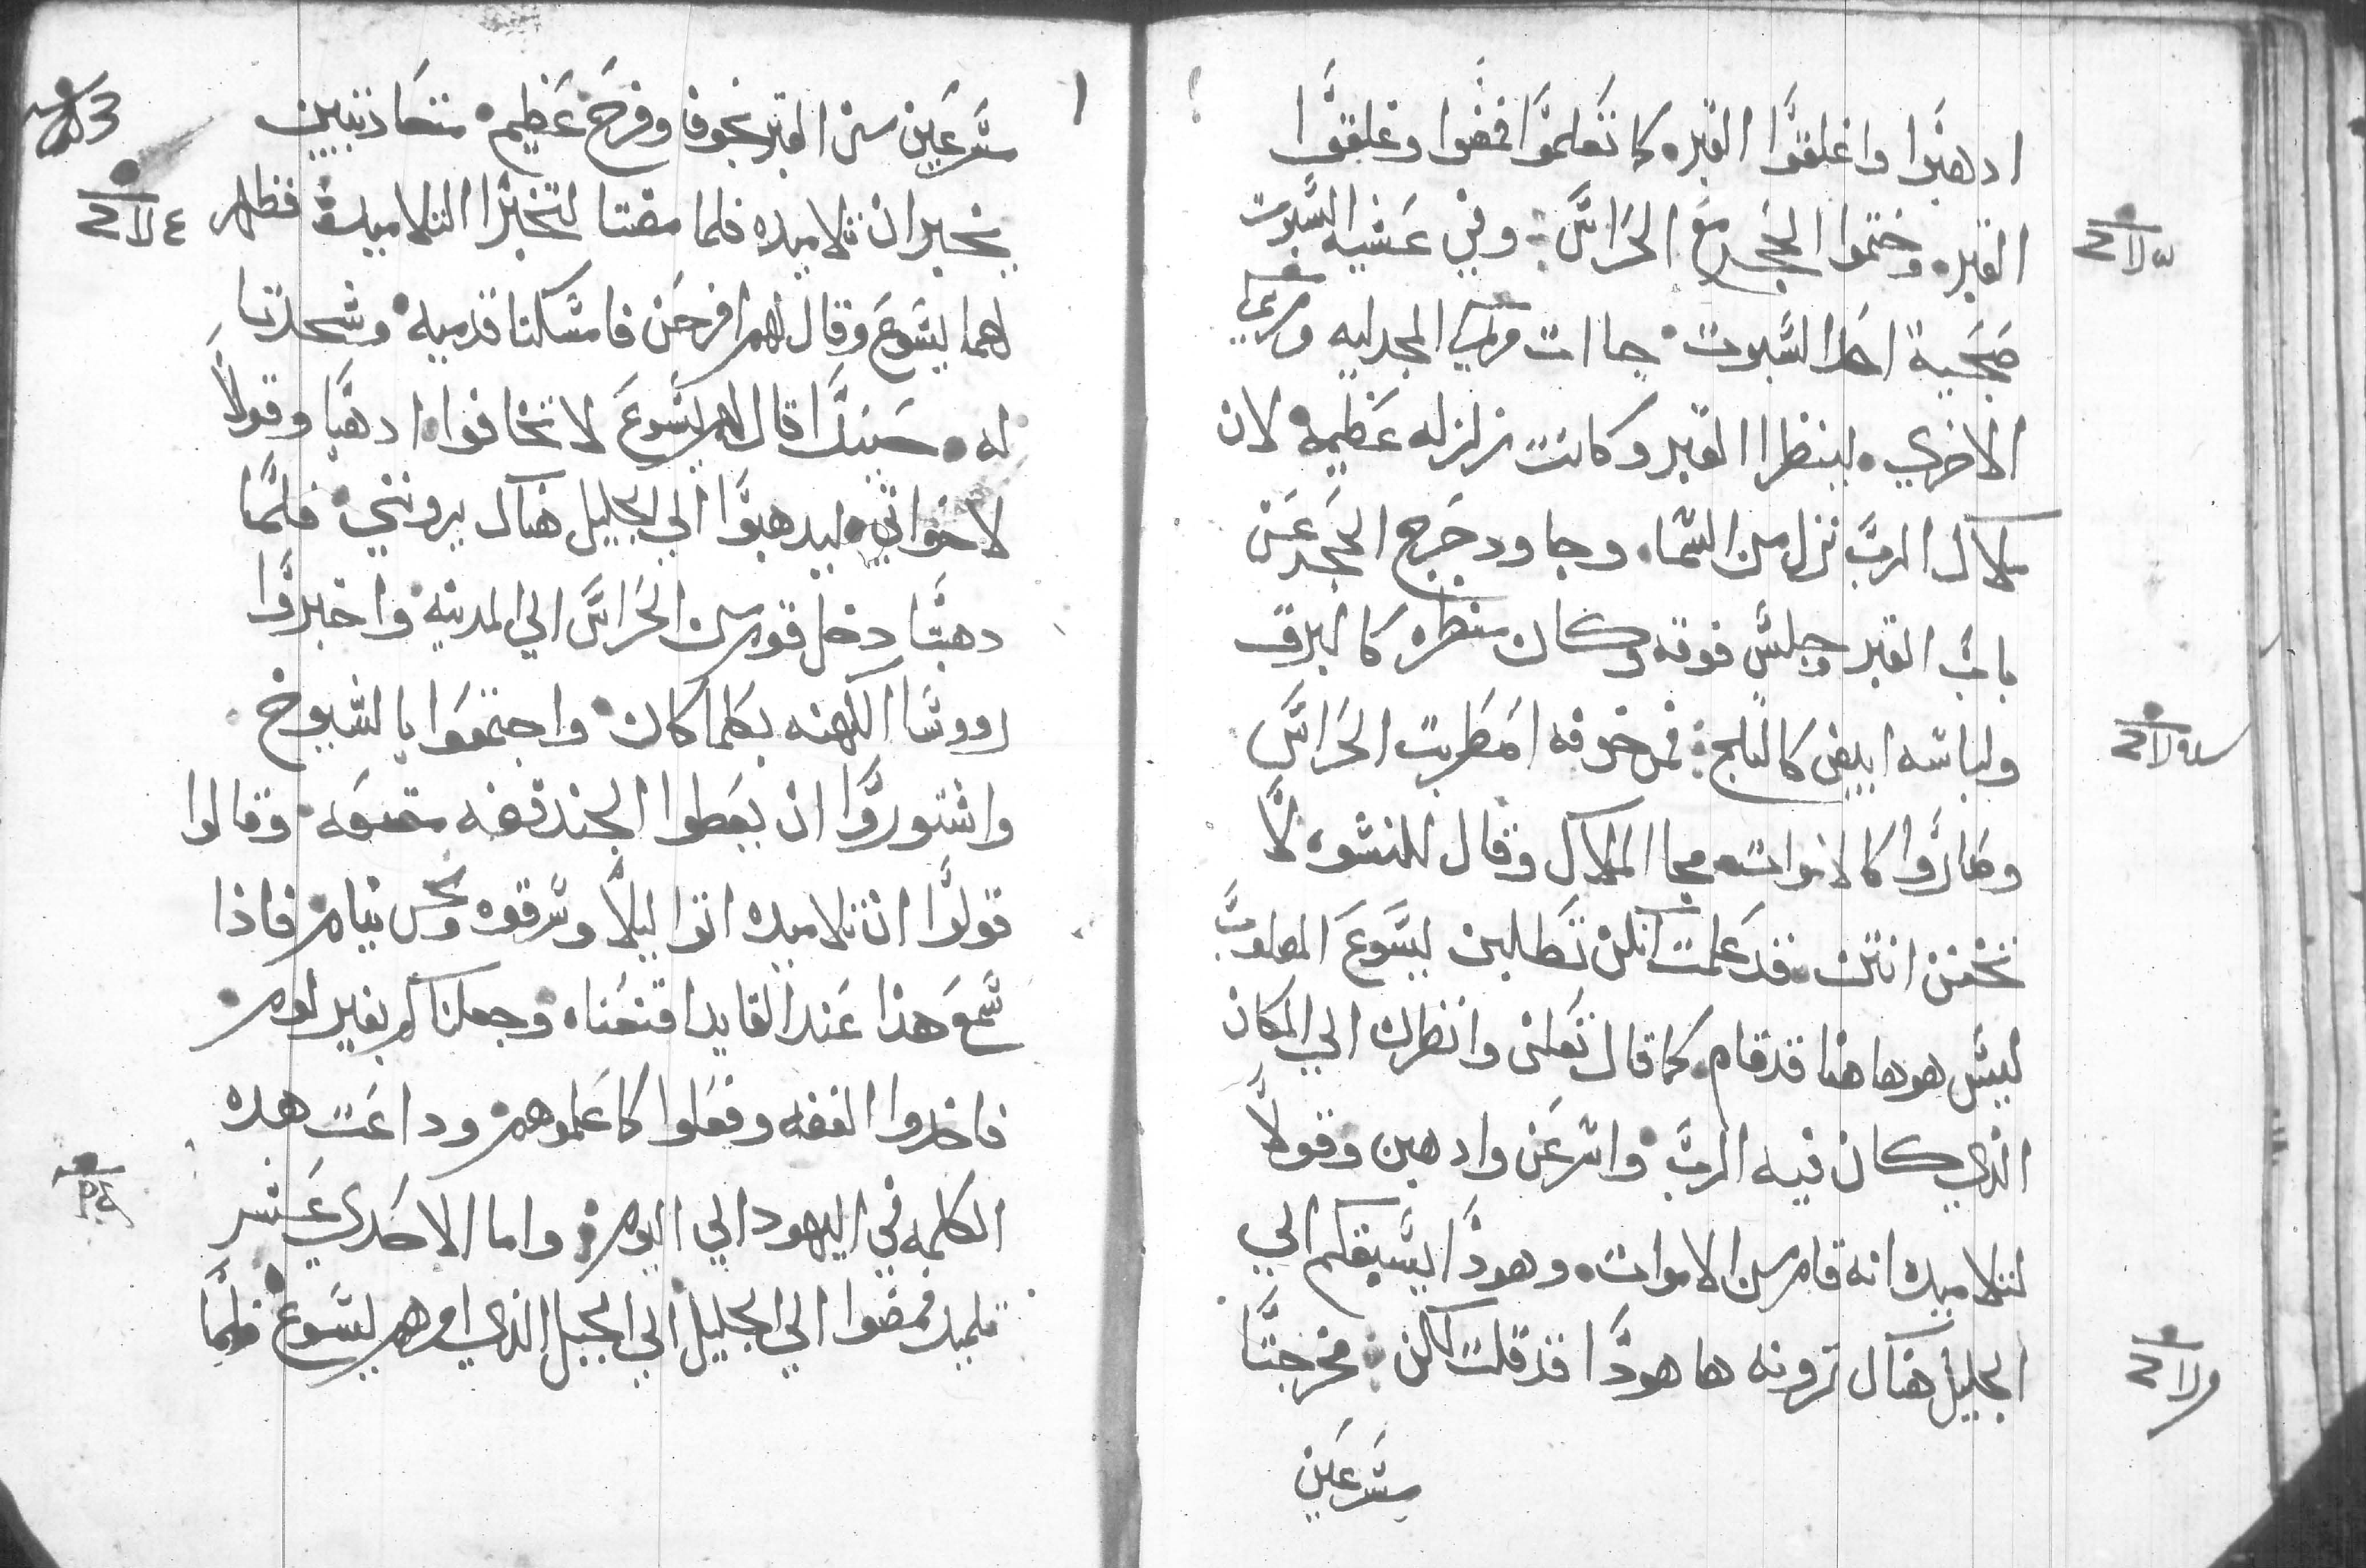 ادهبوا واغلقوا القبر كما تعلموا فمضوا وغلقوا
القبر وختموا الحجر مع الحراس وفي عشيه السبوت
صحية احد السبوت جاات مريم المجدليه ومريم
الاخري لينظرا القبر وكانت زلزله عظيمه لان
ملاك الرب نزل من السما وجا ودحرج الحجر عن
باب القبر وجلس فوقه وكان منظره كالبرق
ولباسه ابيض كالثلج فمن خوفه اضطربت الحراس
وصاروا كالاموات فجا الملاك وقال للنسوه لا
تخفن انتن فقد علمت انكن تطلبن يسوع المصلوب
ليس هو هاهنا قد قام كما قال تعلن وانظرن الي المكان
الذي كان فيه الرب واسرعن وادهبن وقولا
لتلاميده انه قام من الاموات وهودا يسبقكم الي
الجليل هناك ترونه ها هودا قد قلت لكن فخرجتا
مسرعين
مسرعين من القبر بخوف وفرح عظيم متحادتين
يخبران تلاميده فلما مضتا لتخبرا التلاميد فظهر
لهما يسوع وقال لهم افرحن فامسكتا قدميه وسجدتا
له حينيدا قال لهم يسوع لا تخافوا ادهبا وقولا
لاخواتي ليدهبوا الي الجليل هناك يرونني فلما
دهبتا دخل قوم من الحراس الي المدينه واخبروا
رووسا الكهنه بكلما كان واجتمعوا بالشيوخ
واشتوروا ان يعطوا الجند فضه مقنعه وقالوا
قولوا ان تلاميده اتوا ليلا وسرقوه ونحن نيام فاذا
سمع هذا عند القايد اقنعناه وجعلناكم بغير لوم
فاخدوا الفضه وفعلوا كما علموهم وداعت هده
الكلمه في اليهود الي اليوم واما الاحدي عشر
تلميد فمضوا الي الجليل الي الجبل الذي امرهم يسوع فلما